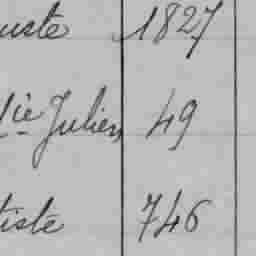 uste 1827
Mie Julien 49
tiste 746